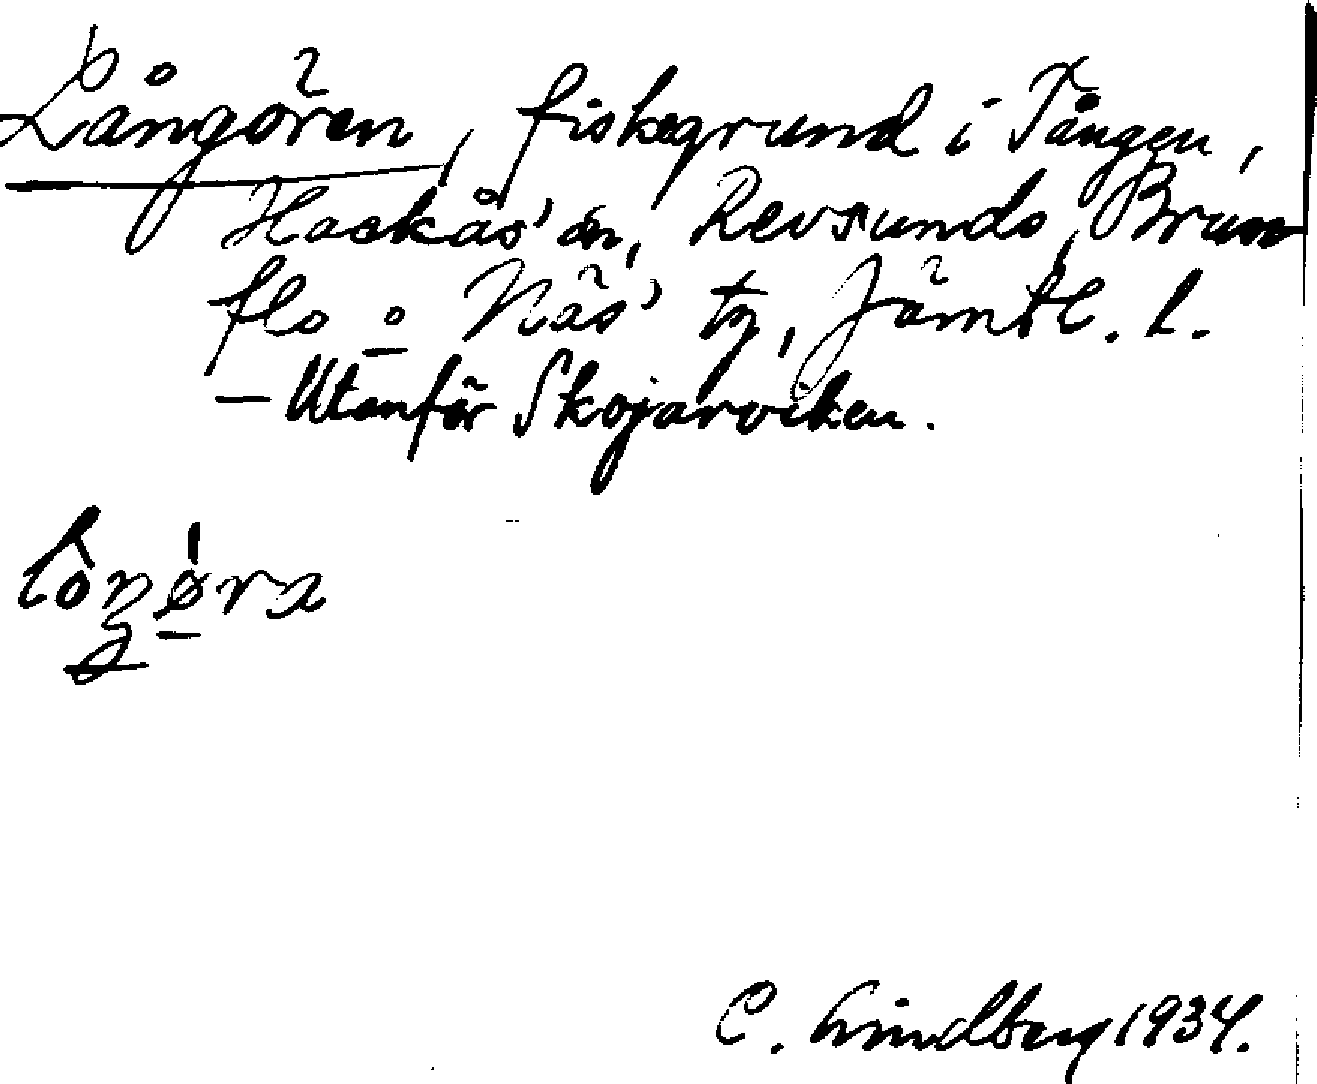 Långören, fiskegrund i Tången,
Hackås' sn, Revsunds, Brun
flo o Näs' tg, Jämtl. l.
– Utanför Skojarviken.
C. Lindberg 1934.